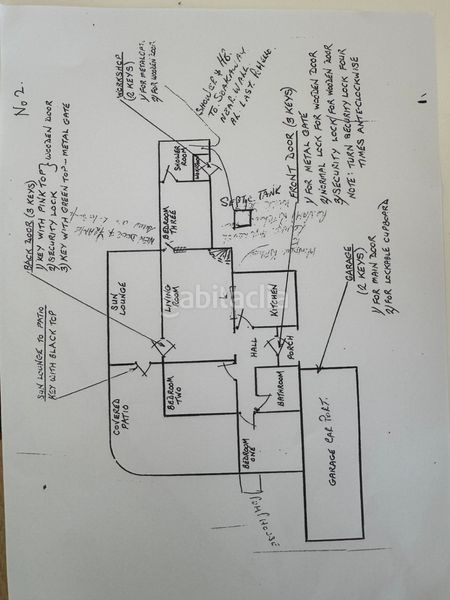 No 2.
BACK DOOR (3 KEYS)
1/ KEY WITH PINK TOP } WOODEN DOOR
2/ SECURITY LOCK
3/ KEY WITH GREEN TOP - METAL GATE
SUN LOUNGE TO PATIO
KEY WITH BLACK TOP
WORKSHOP
(2 KEYS)
1/ FOR METAL GATE
2/ FOR WOODEN DOOR
SHOWER & HB.
TO SOAKAWAY
NEAR WALL
FRONT DOOR (3 KEYS)
1/ FOR METAL GATE
2/ NORMAL LOCK FOR WOODEN DOOR
3/ SECURITY LOCK FOR WOODEN DOOR
NOTE: TURN SECURITY LOCK FOUR
TIMES ANTI-CLOCKWISE
GARAGE
(2 KEYS)
1/ FOR MAIN DOOR
2/ FOR LOCKABLE CUPBOARD
SHOWER
ROOM
BEDROOM
THREE
SEPTIC TANK
SUN
LOUNGE
LIVING
ROOM
KITCHEN
HALL
PORCH
COVERED
PATIO
BEDROOM
TWO
BATHROOM
BEDROOM
ONE
GARAGE CAR PORT.
habitaclia